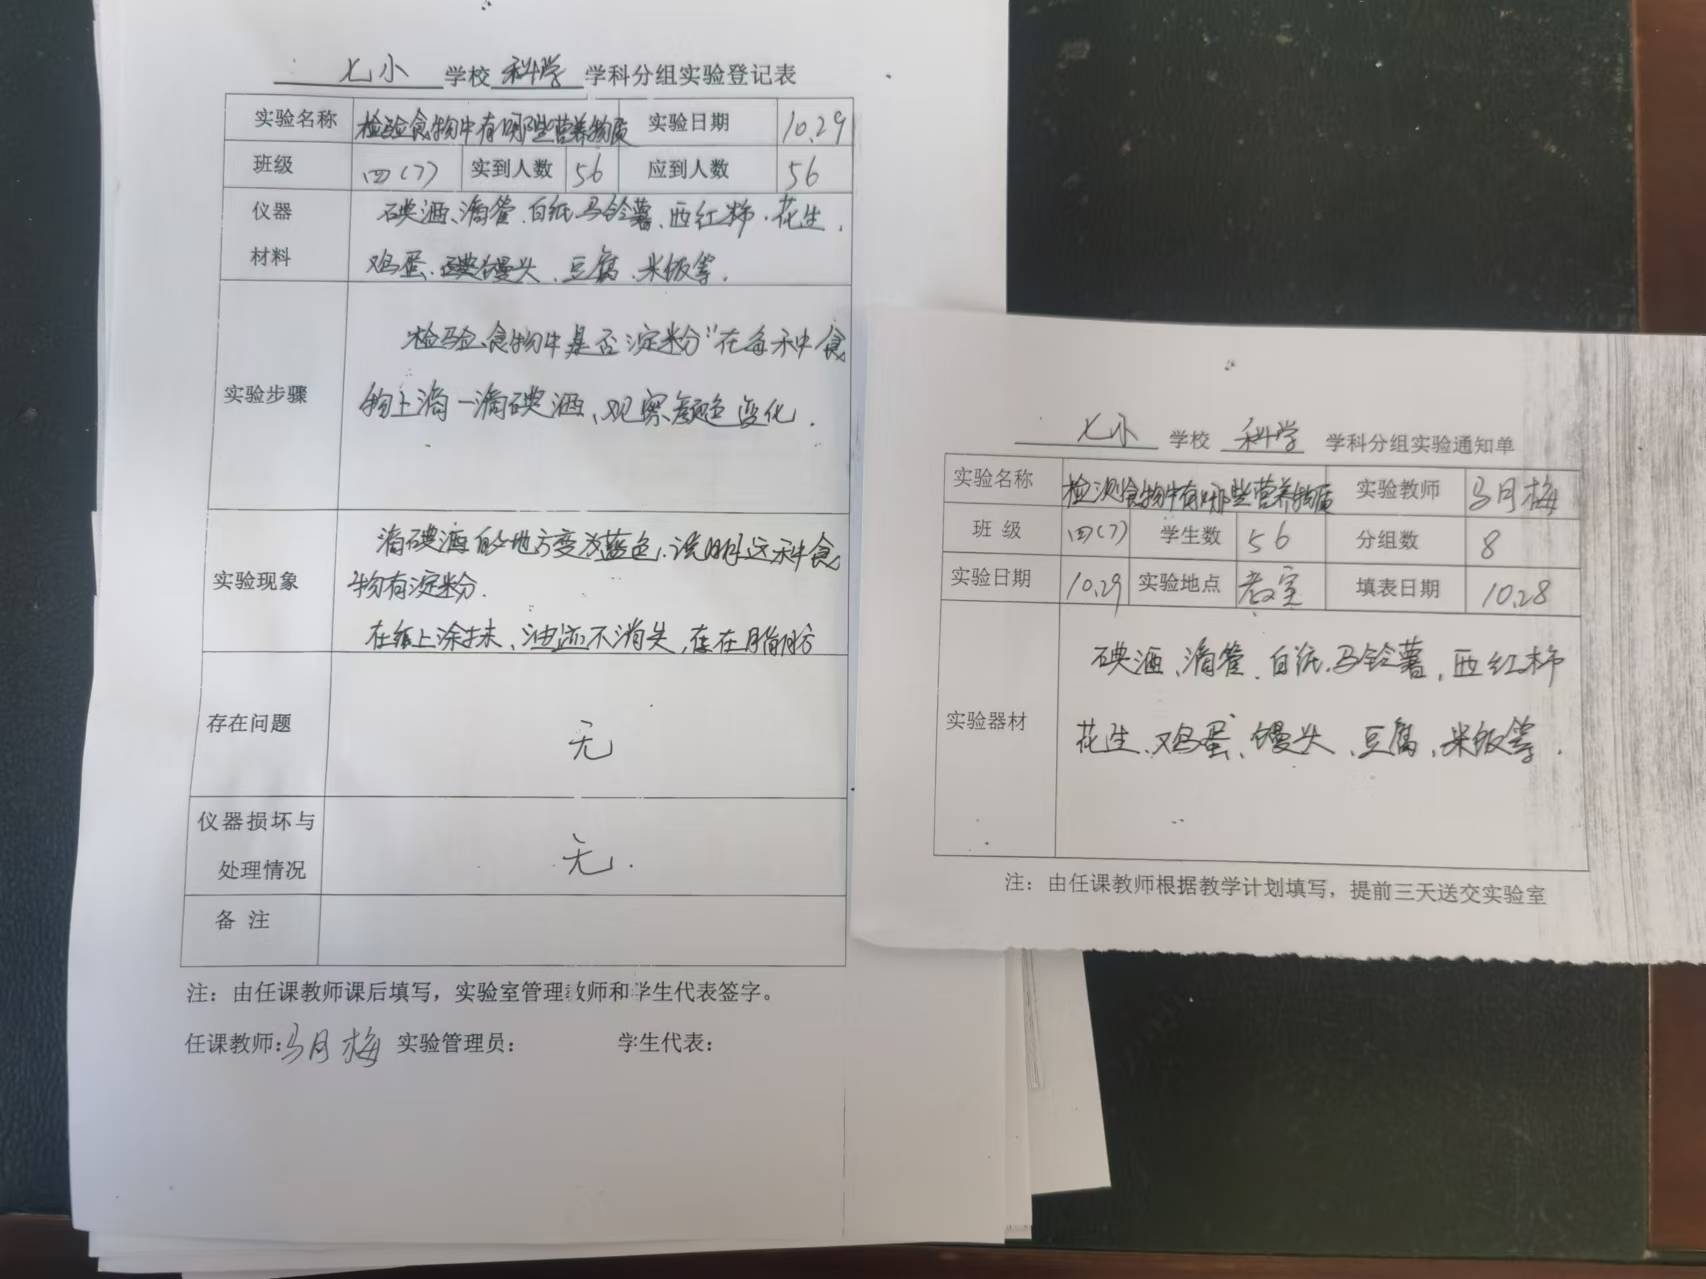 七小 学校 科学 学科分组实验登记表
实验名称 检验食物中有哪些营养物质 实验日期 10.29
班级 四(7) 实到人数 56 应到人数 56
仪器 碘酒、滴管、白纸、马铃薯、西红柿、花生、
材料 鸡蛋、馒头、豆腐、米饭等.
检验食物中是否淀粉"在每种食
实验步骤 物上滴一滴碘酒、观察颜色变化.
滴碘酒的地方变为蓝色.说明这种食
实验现象 物有淀粉.
在纸上涂抹、油迹不消失,存在脂肪
存在问题 无
仪器损坏与
处理情况 无.
备 注
注：由任课教师课后填写，实验室管理教师和学生代表签字。
任课教师:马月梅 实验管理员: 学生代表:
七小 学校 科学 学科分组实验通知单
实验名称 检测食物中有哪些营养物质 实验教师 马月梅
班 级 四(7) 学生数 56 分组数 8
实验日期 10.29 实验地点 教室 填表日期 10.28
碘酒、滴管、白纸、马铃薯、西红柿
实验器材 花生、鸡蛋、馒头、豆腐、米饭等.
注：由任课教师根据教学计划填写，提前三天送交实验室